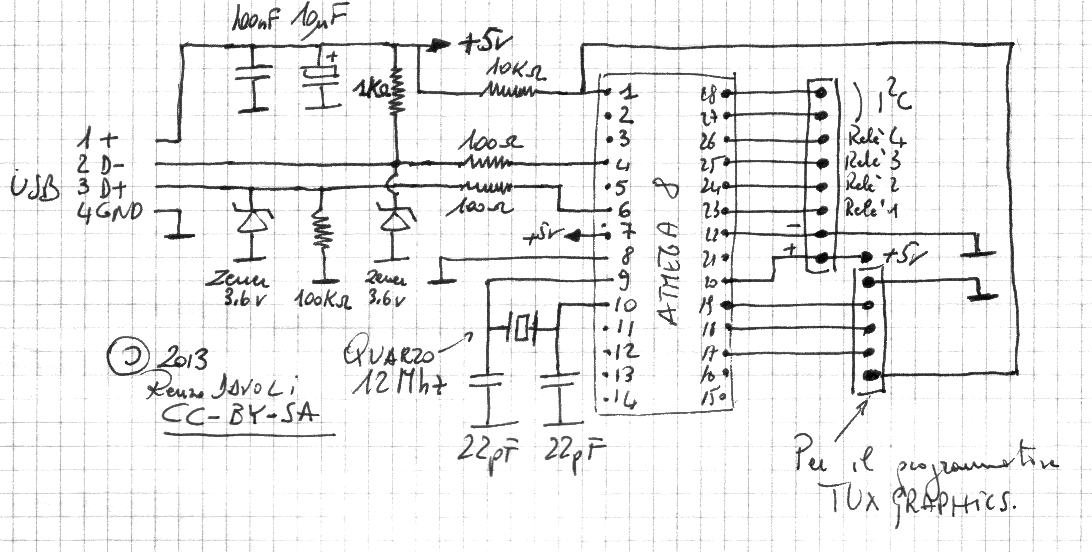 100nF 10µF
+5v
10KΩ
1KΩ
+
USB
1 +
2 D-
3 D+
4 GND
100Ω
100Ω
+5v
Zener
3.6v
100KΩ
Zener
3.6v
QUARZO
12Mhz
22pF 22pF
ATMEGA 8
1
2
3
4
5
6
7
8
9
10
11
12
13
14
28
27
26
25
24
23
22
21
20
19
18
17
16
15
) I²C
Relè 4
Relè 3
Relè 2
Relè 1
-
+
+5v
2013
Renzo Davoli
CC-BY-SA
Per il programmatore
TUXGRAPHICS.